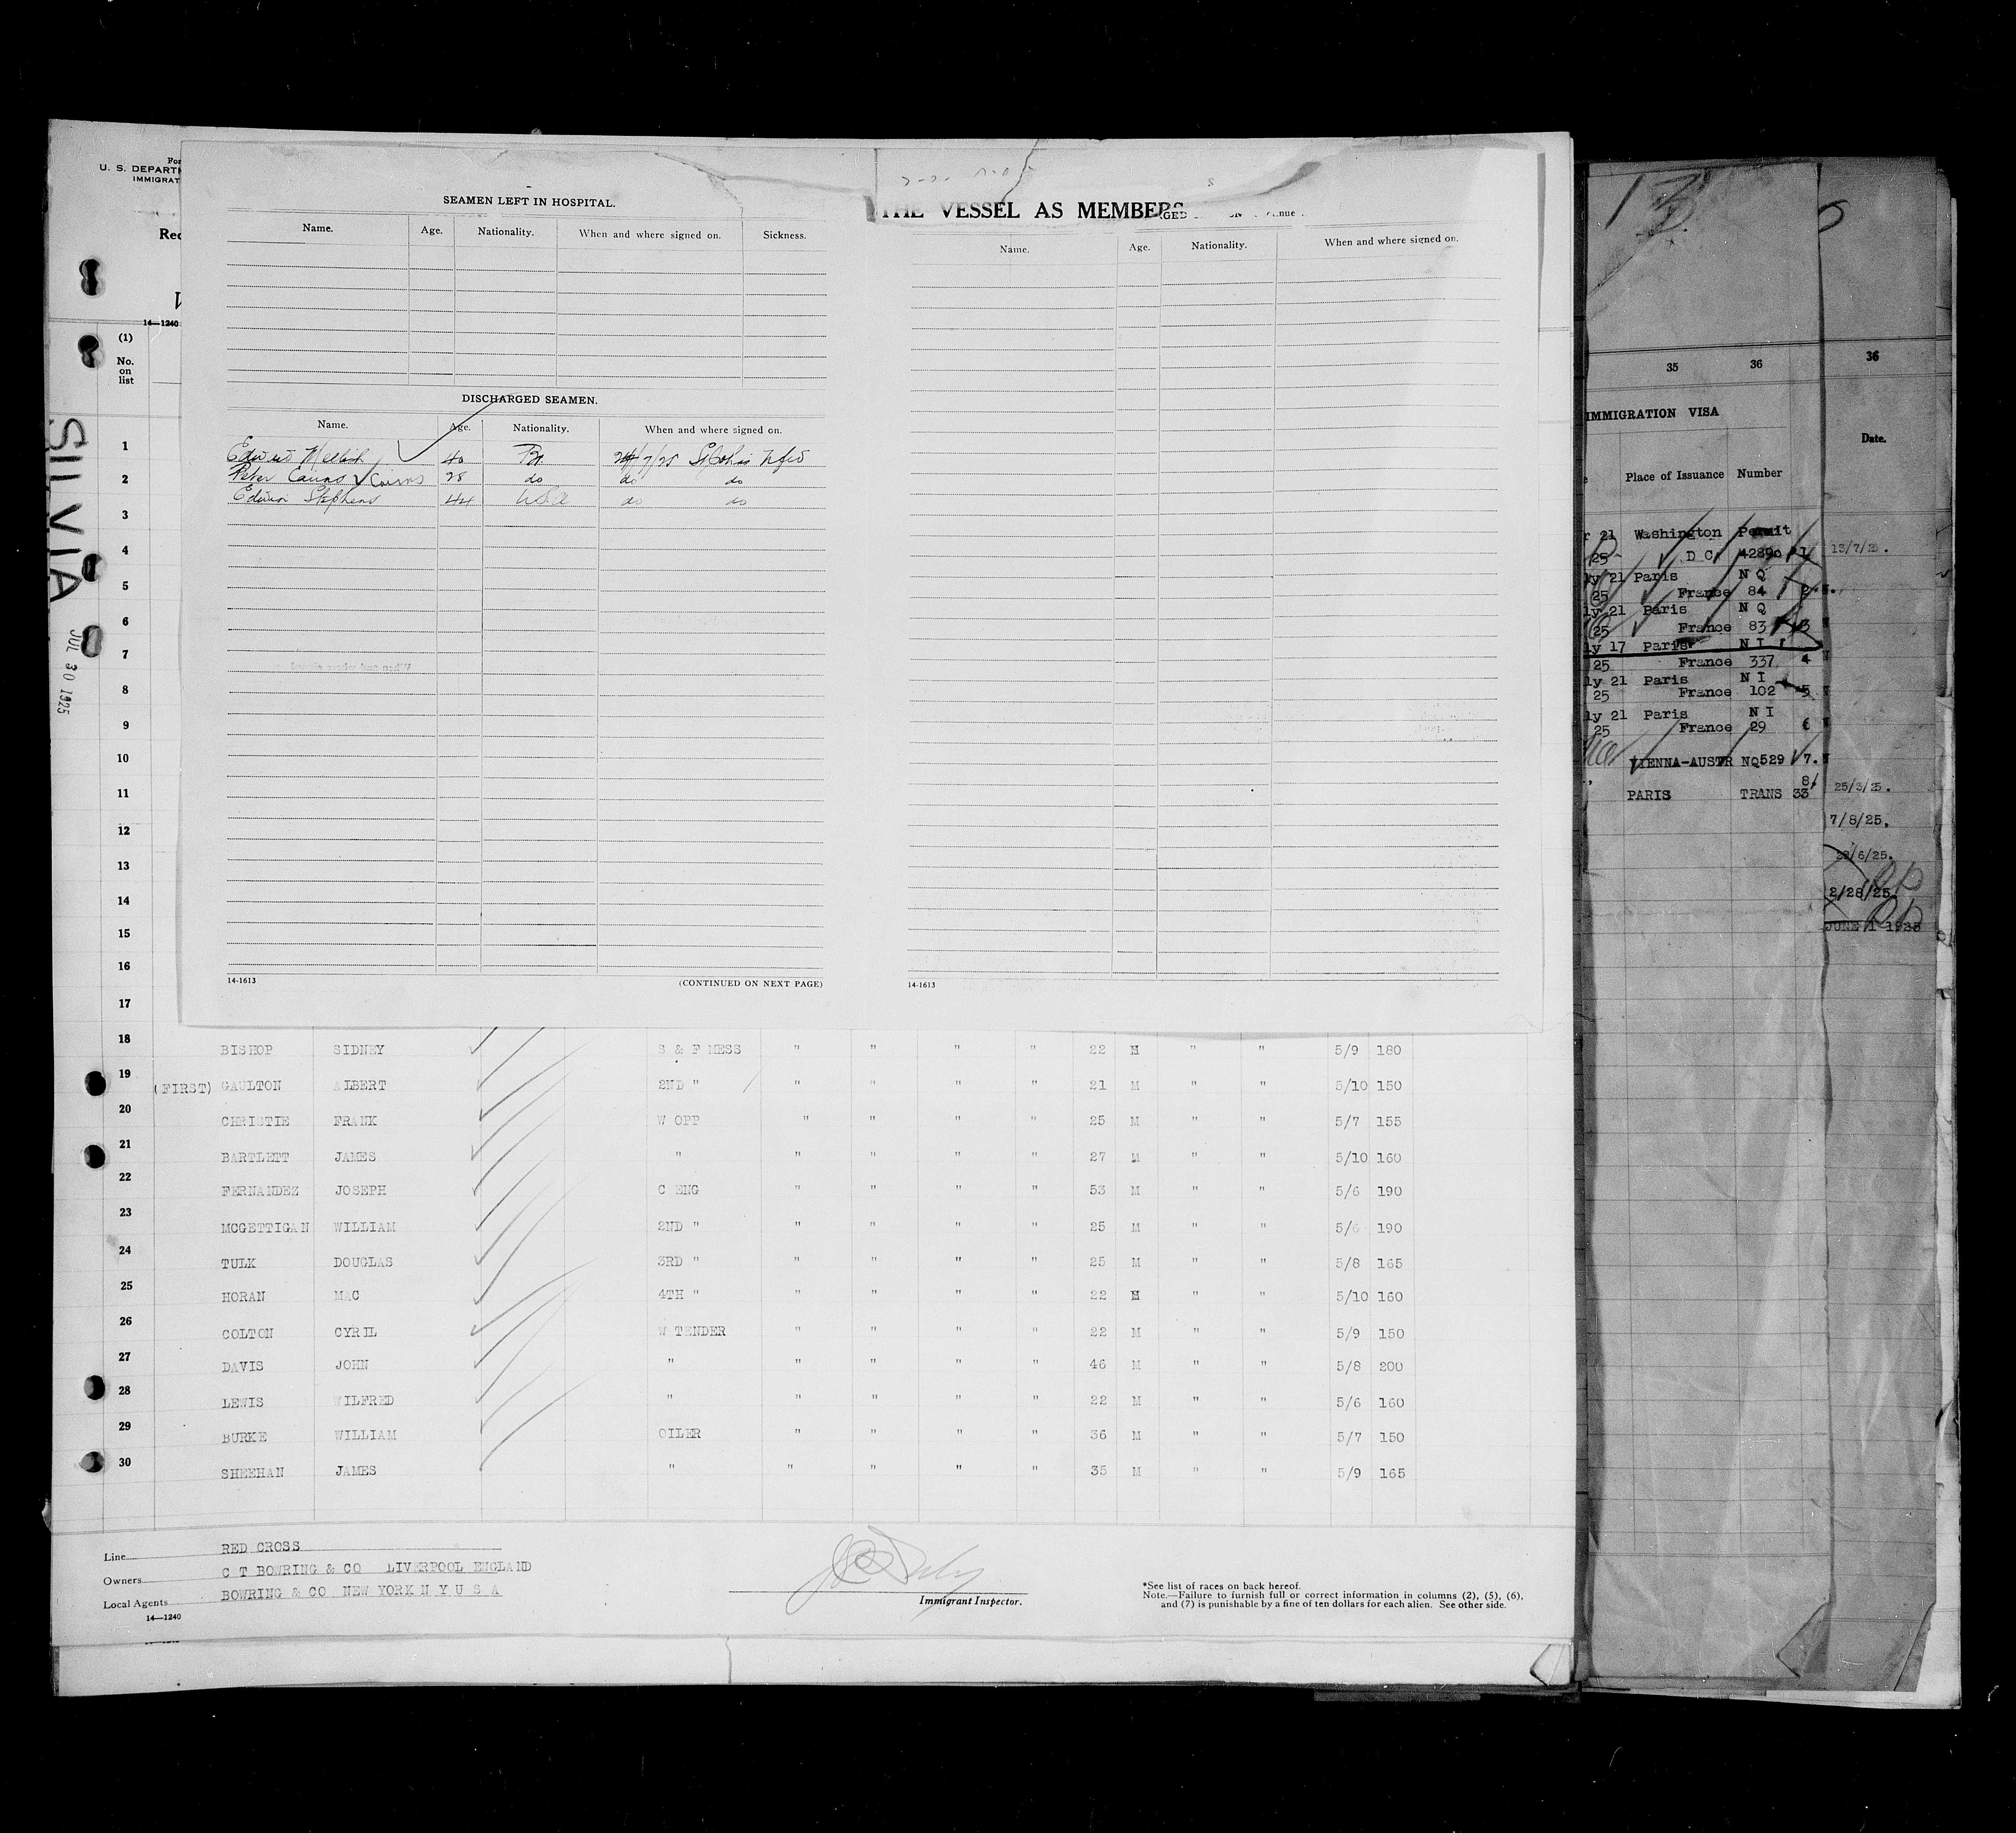 For
U. S. DEPARTM
IMMIGRAT
Rec
14—1240
(1)
No.
on
list
SILVIA
JUL 30 1925
SEAMEN LEFT IN HOSPITAL.
Name. Age. Nationality. When and where signed on. Sickness.
DISCHARGED SEAMEN.
Name. Age. Nationality. When and where signed on.
40 Br 24/7/25 St Johns Nfld
Peter Cairns Cairns 28 do do do
Edwin Stephens 44 USA do do
14-1613 (CONTINUED ON NEXT PAGE)
THE VESSEL AS MEMBERS
Name. Age. Nationality. When and where signed on.
14-1613
1
2
3
4
5
6
7
8
9
10
11
12
13
14
15
16
17
18 BISHOP SIDNEY S & F MESS " " " " 22 M " " 5/9 180
19 (FIRST) GAULTON ALBERT 2ND " " " " " 21 M " " 5/10 150
20 CHRISTIE FRANK W OPP " " " " 25 M " " 5/7 155
21 BARTLETT JAMES " " " " " 27 M " " 5/10 160
22 FERNANDEZ JOSEPH C ENG " " " " 53 M " " 5/6 190
23 MCGETTIGAN WILLIAM 2ND " " " " " 25 M " " 5/6 190
24 TULK DOUGLAS 3RD " " " " " 25 M " " 5/8 165
25 HORAN MAC 4TH " " " " " 22 M " " 5/10 160
26 COLTON CYRIL W TENDER " " " " 22 M " " 5/9 150
27 DAVIS JOHN " " " " " 46 M " " 5/8 200
28 LEWIS WILFRED " " " " " 22 M " " 5/6 160
29 BURKE WILLIAM OILER " " " " 36 M " " 5/7 150
30 SHEEHAN JAMES " " " " " 35 M " " 5/9 165
Line RED CROSS
Owners C T BOWRING & CO LIVERPOOL ENGLAND
Local Agents BOWRING & CO NEW YORK N Y U S A
14—1240
Immigrant Inspector.
*See list of races on back hereof.
Note.—Failure to furnish full or correct information in columns (2), (5), (6),
and (7) is punishable by a fine of ten dollars for each alien. See other side.
13
35 36
IMMIGRATION VISA
Place of Issuance Number
r 21 Washington Permit
25 D C 42890 1
ly 21 Paris N Q
25 France 84 2
ly 21 Paris N Q
25 France 83 3
ly 17 Paris N I
25 France 337 4
ly 21 Paris N I
25 France 102 5
ly 21 Paris N I
25 France 29 6
VIENNA-AUSTR NQ529 7.
8
PARIS TRANS 33
36
Date.
13/7/25.
25/3/25.
7/8/25.
22/6/25.
2/28/25.
JUNE 1 1925